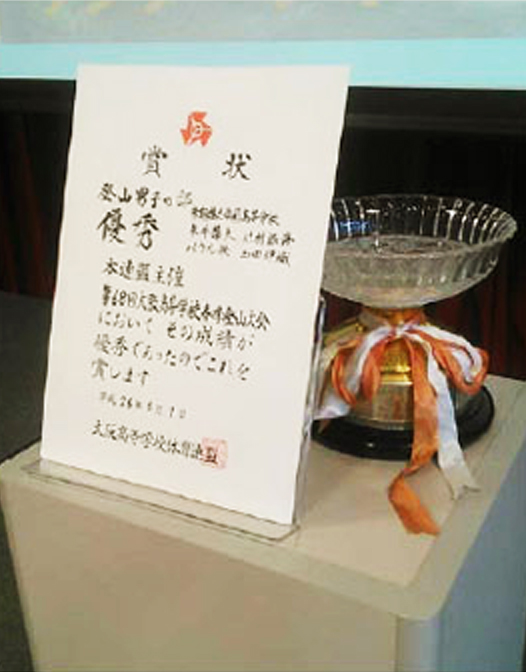 賞 状
登山男子の部
優秀
本連盟主催
第68回大阪高等学校春季登山大会
において その成績が
優秀であったのでこれを
賞します
平成26年5月1日
大阪高等学校体育連盟